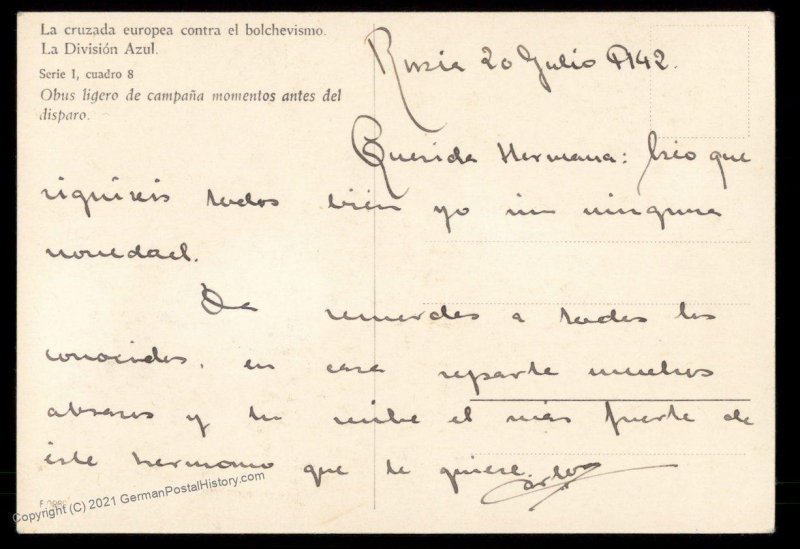 La cruzada europea contra el bolchevismo.
La División Azul.
Serie I, cuadro 8
Obus ligero de campaña momentos antes del
disparo.
Rusia 20 Julio 1942.
Querida Hermana: Creo que
siguireis todos bien yo sin ninguna
novedad.
Da recuerdos a todos los
conocidos, en casa reparte muchos
abrazos y tu recibe el mas fuerte de
este hermano que te quiere.
Carlos
Copyright (C) 2021 GermanPostalHistory.com